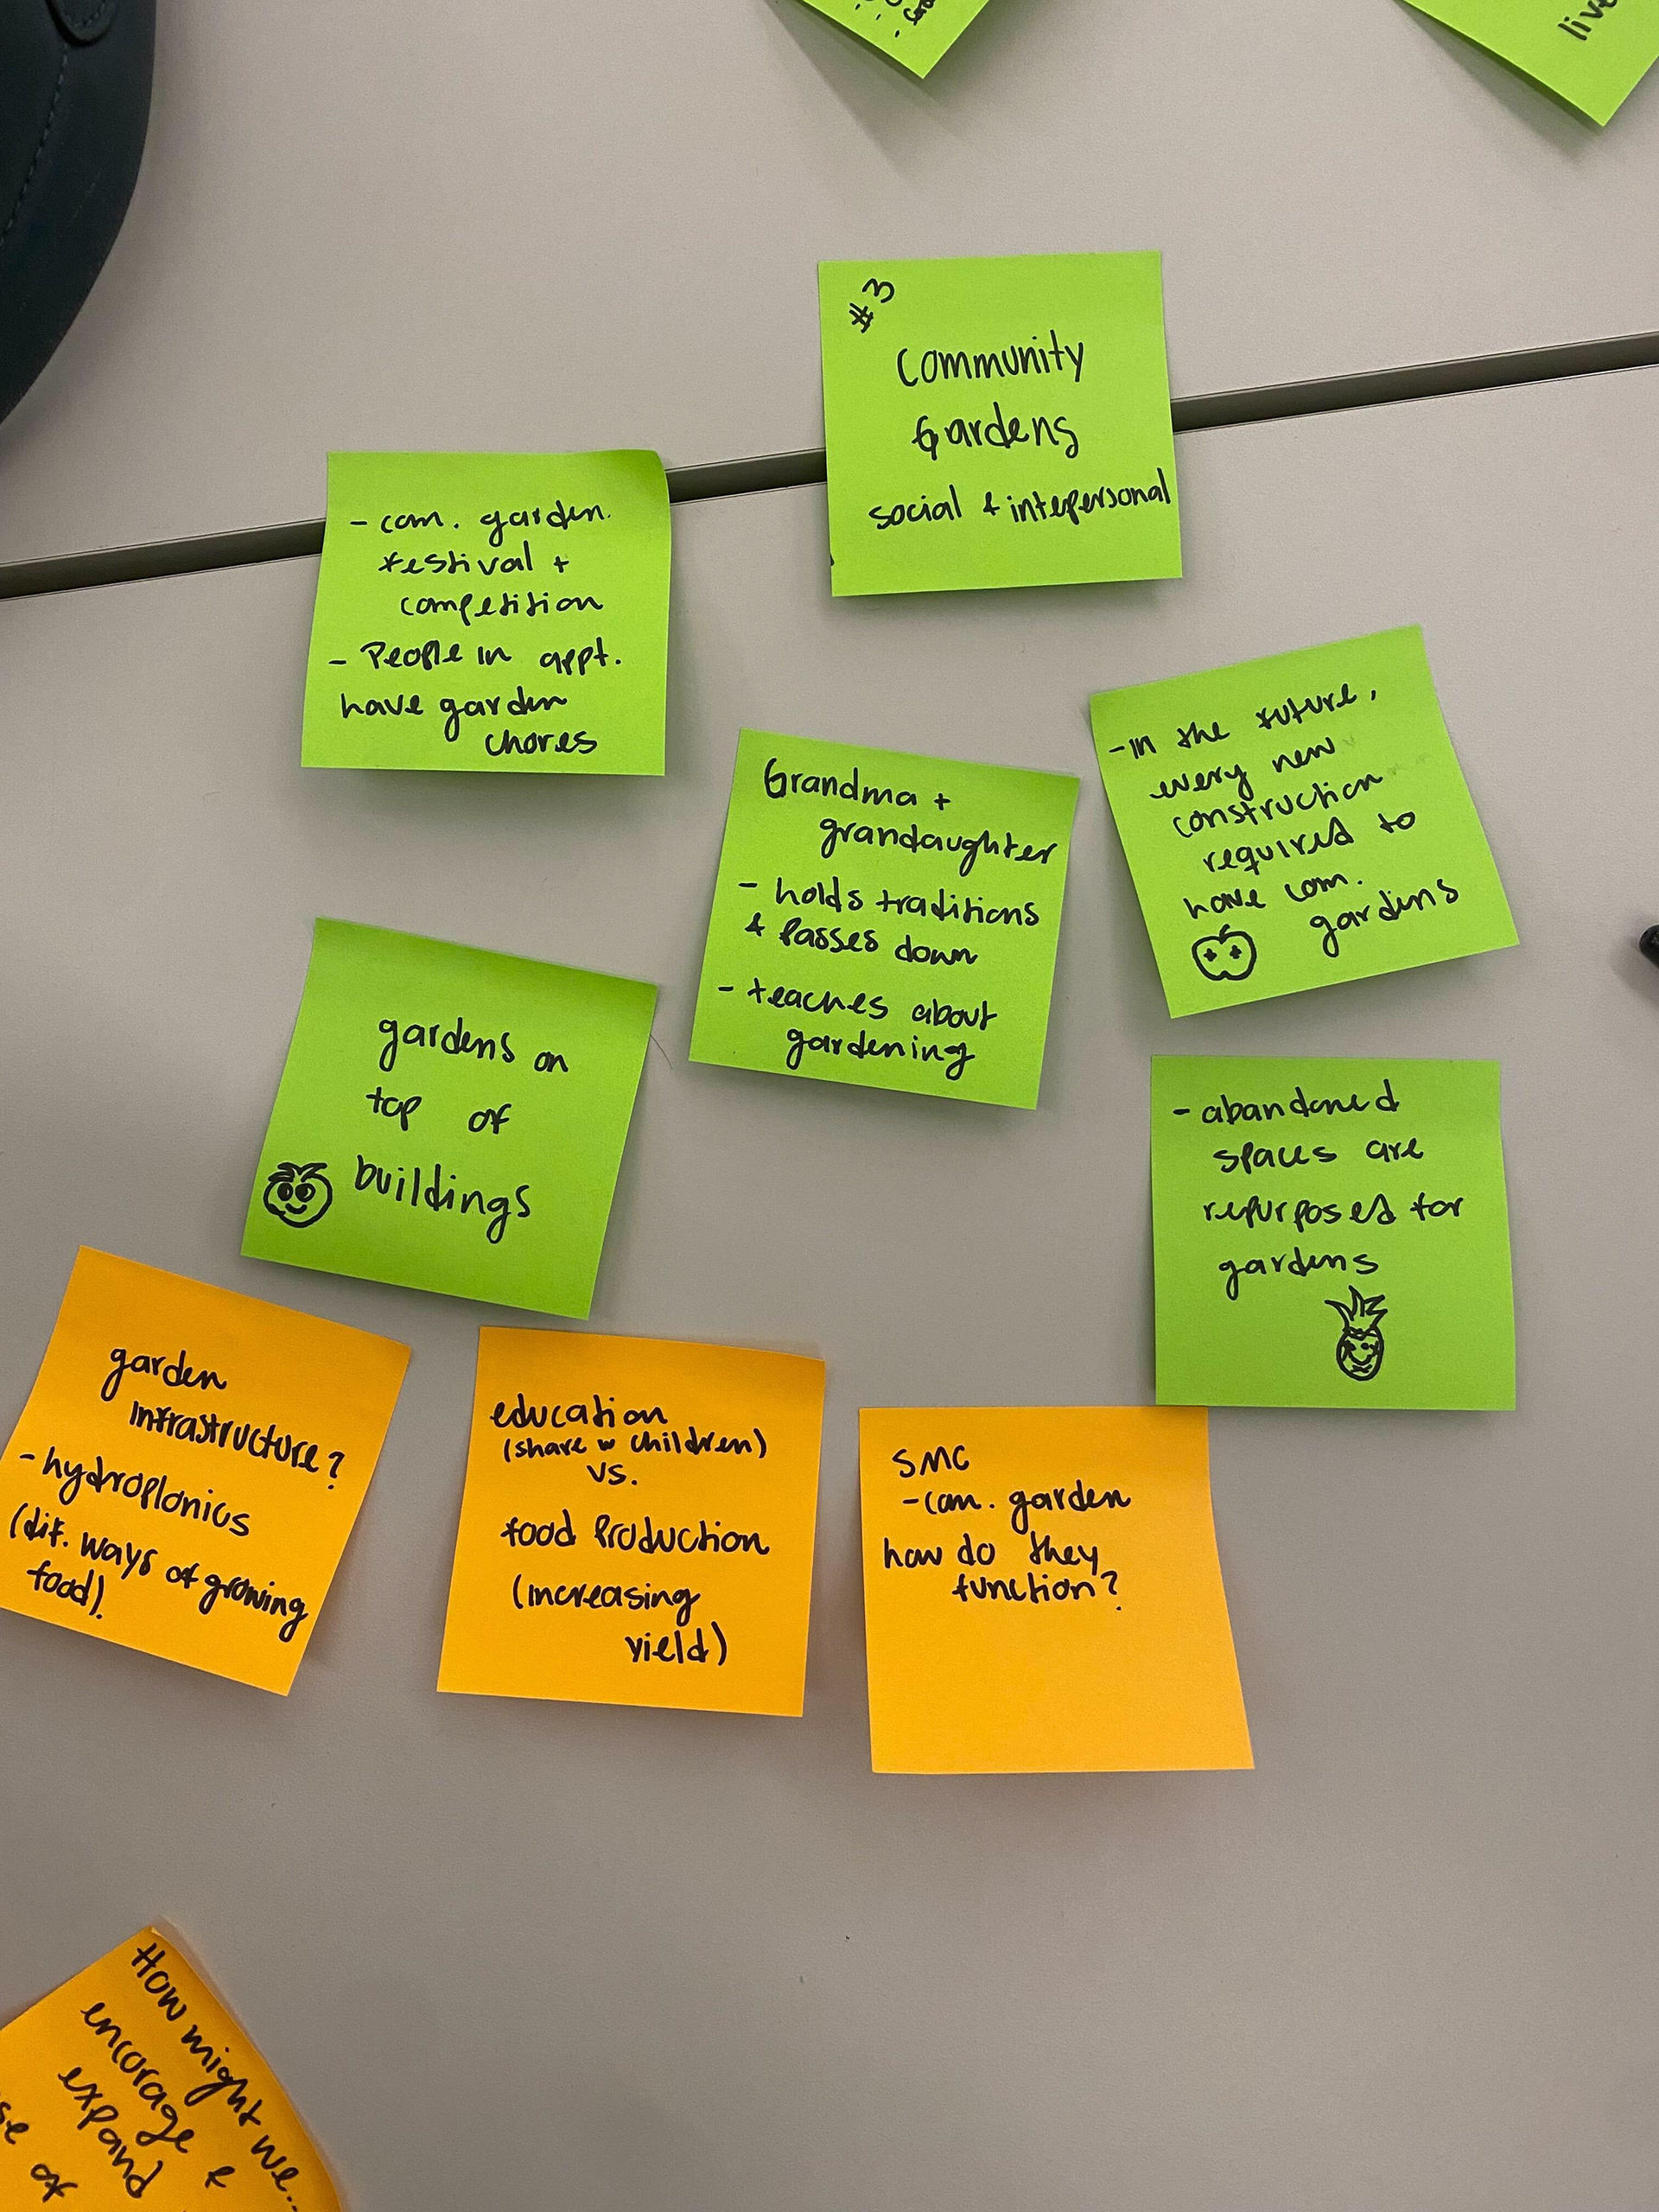 live
#3
Community
Gardens
social & intepersonal
- com. garden.
festival +
competition
- People in appt.
have garden
chores
Grandma +
grandaughter
- holds traditions
& passes down
- teaches about
gardening
- in the future,
every new
construction
required to
have com.
gardens
gardens on
top of
buildings
- abandoned
spaces are
repurposed for
gardens
garden
infrastructure?
- hydroplonics
(dif. ways of growing
food).
education
(share w children)
vs.
food production
(increasing
yield)
SMC
- com. garden
how do they
function?
How might we...
encorage &
expand
of